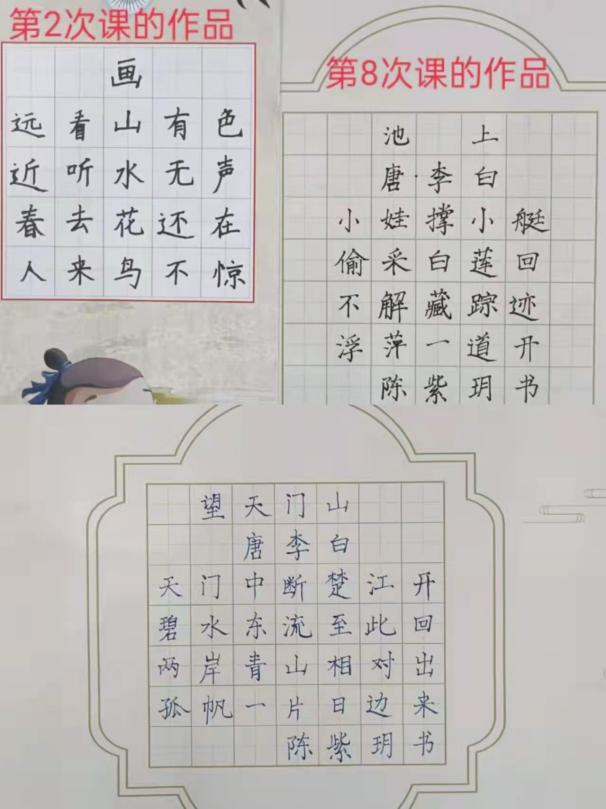 第2次课的作品
画
远看山有色
近听水无声
春去花还在
人来鸟不惊
第8次课的作品
池上
唐·李白
小娃撑小艇
偷采白莲回
不解藏踪迹
浮萍一道开
陈紫玥书
望天门山
唐李白
天门中断楚江开
碧水东流至此回
两岸青山相对出
孤帆一片日边来
陈紫玥书